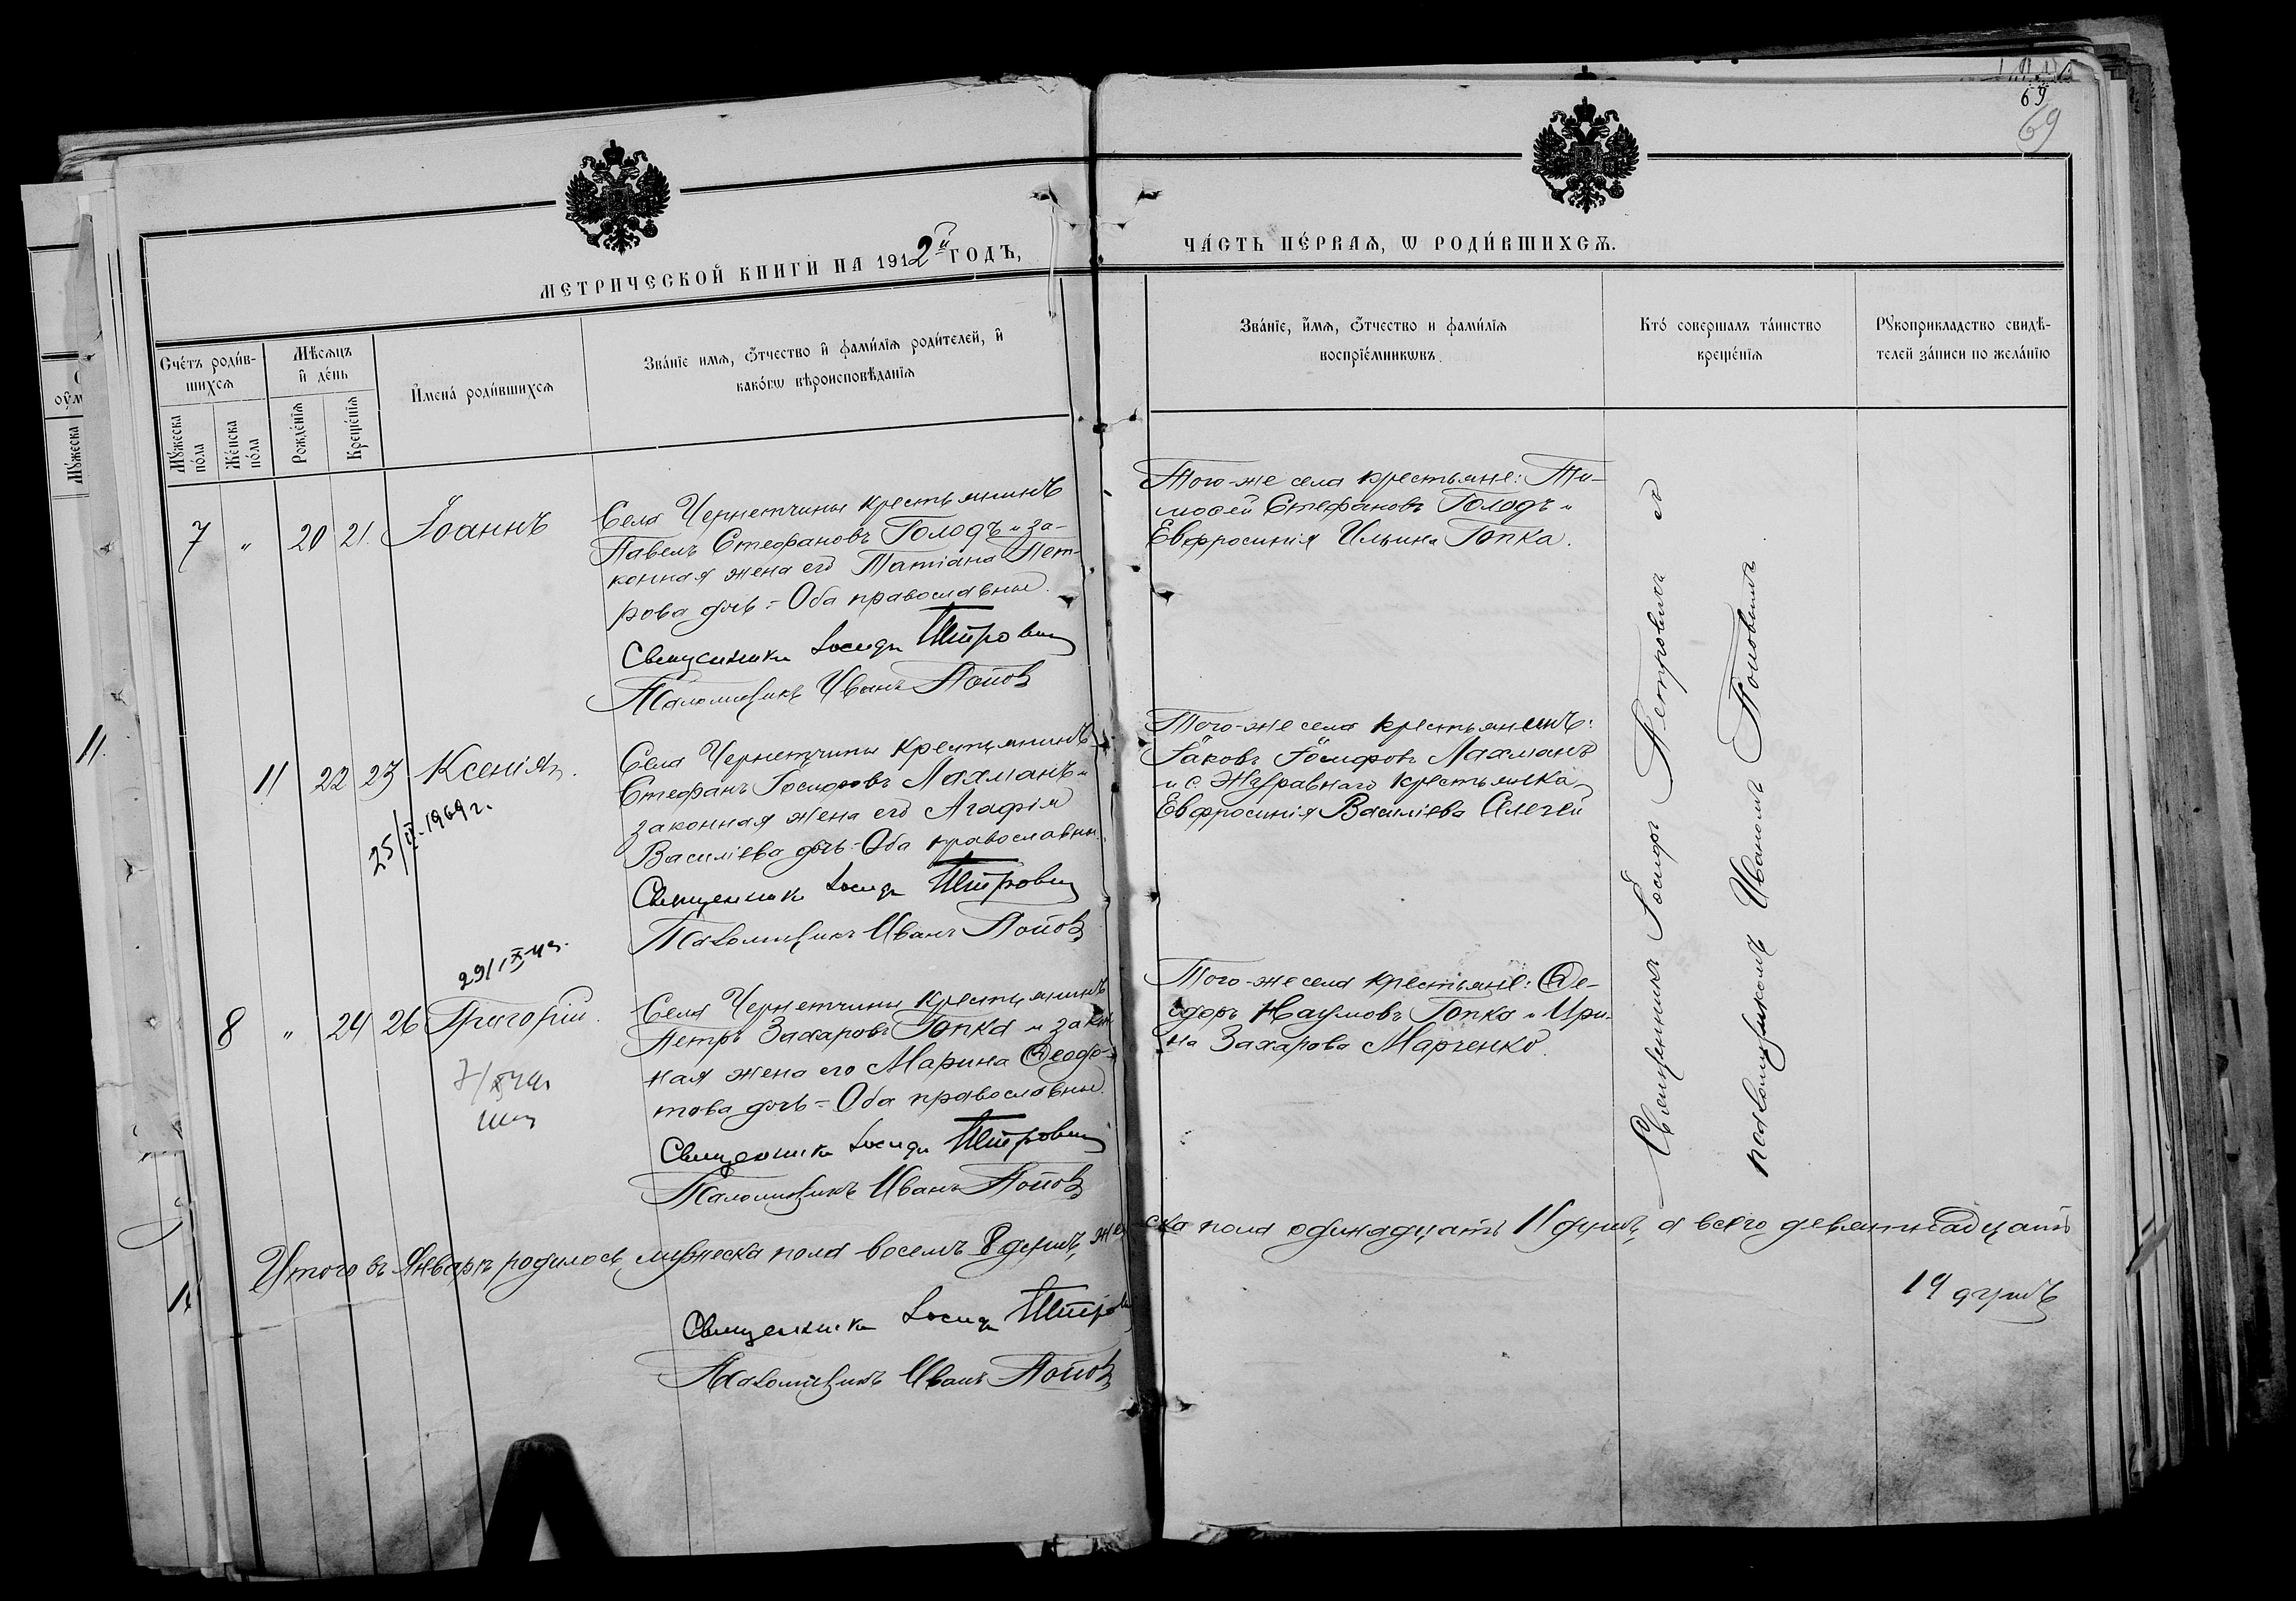 69
69
МЕТРИЧЕСКОЙ КНИГИ НА 1912й ГОДЪ,
ЧА́СТЬ ПЕ́РВАЯ, Ѡ РОДИ́ВШИХСѦ.
Сче́тъ роди́в-
шихсѧ
Мꙋ́жеска
по́ла
Же́нска
по́ла
Мѣсѧцъ
и҆ де́нь
Рожде́нїѧ
Креще́нїѧ
И҆мена́ роди́вшихсѧ
Зва́нїе имѧ, ѻ҆́тчество и҆ фами́лїѧ роди́телей, и҆
како́гѡ вѣроисповѣ́данїѧ
Зва́нїе, и҆́мѧ, ѻ҆́тчество и фами́лїѧ
воспрїе́мникѡвъ.
Кто́ совершалъ та́инство
креще́нїѧ
Рꙋкоприкладство свидѣ́-
телей за́писи по жела́нїю
7 " 20 21. Іоаннъ
Села Чернетчины крестьянинъ
Павелъ Стефановъ Голодъ и за-
конная жена его Татіана Пет-
рова дочь - Оба православные.
Священникъ Іосифъ Петрович
Псаломщикъ Иванъ Попов
Того-же села крестьяне: Ти-
мофей Стефановъ Голодъ и
Евфросинія Ильина Гопка.
11 22 23 Ксенія.
25/IV-1969г.
Села Чернетчины крестьянинъ
Стефанъ Іосифовъ Лахманъ и
законная жена его Агафія
Василіева дочь - Оба православны.
Священникъ Іосифъ Петрович
Псаломщикъ Иванъ Попов
Того-же села крестьянинъ:
Іаковъ Іосифовъ Лахманъ
и с. Журавнаго крестьянка
Евфросинія Василіева
8 " 24 26 Григорій.
Села Чернетчины крестьянинъ
Петръ Захаровъ Гопка и закон
ная жена его Марина Ѳеодо-
това дочь - Оба православные.
Священникъ Іосифъ Петрович
Псаломщикъ Иванъ Попов
Того-же села крестьяне: Ѳе-
одоръ Наумовъ Гопка и Ири-
на Захарова Марченко.
Священникъ Іосифъ Петровичъ съ
псаломщикомъ Иваномъ Поповымъ
Итого въ Январѣ родилось мужеска пола восемъ 8 душъ, жен
ска пола одинадцать 11 душъ, а всего девятнадцать
19 душъ
Священникъ Іосифъ Петрович
Псаломщикъ Иванъ Попов
11.